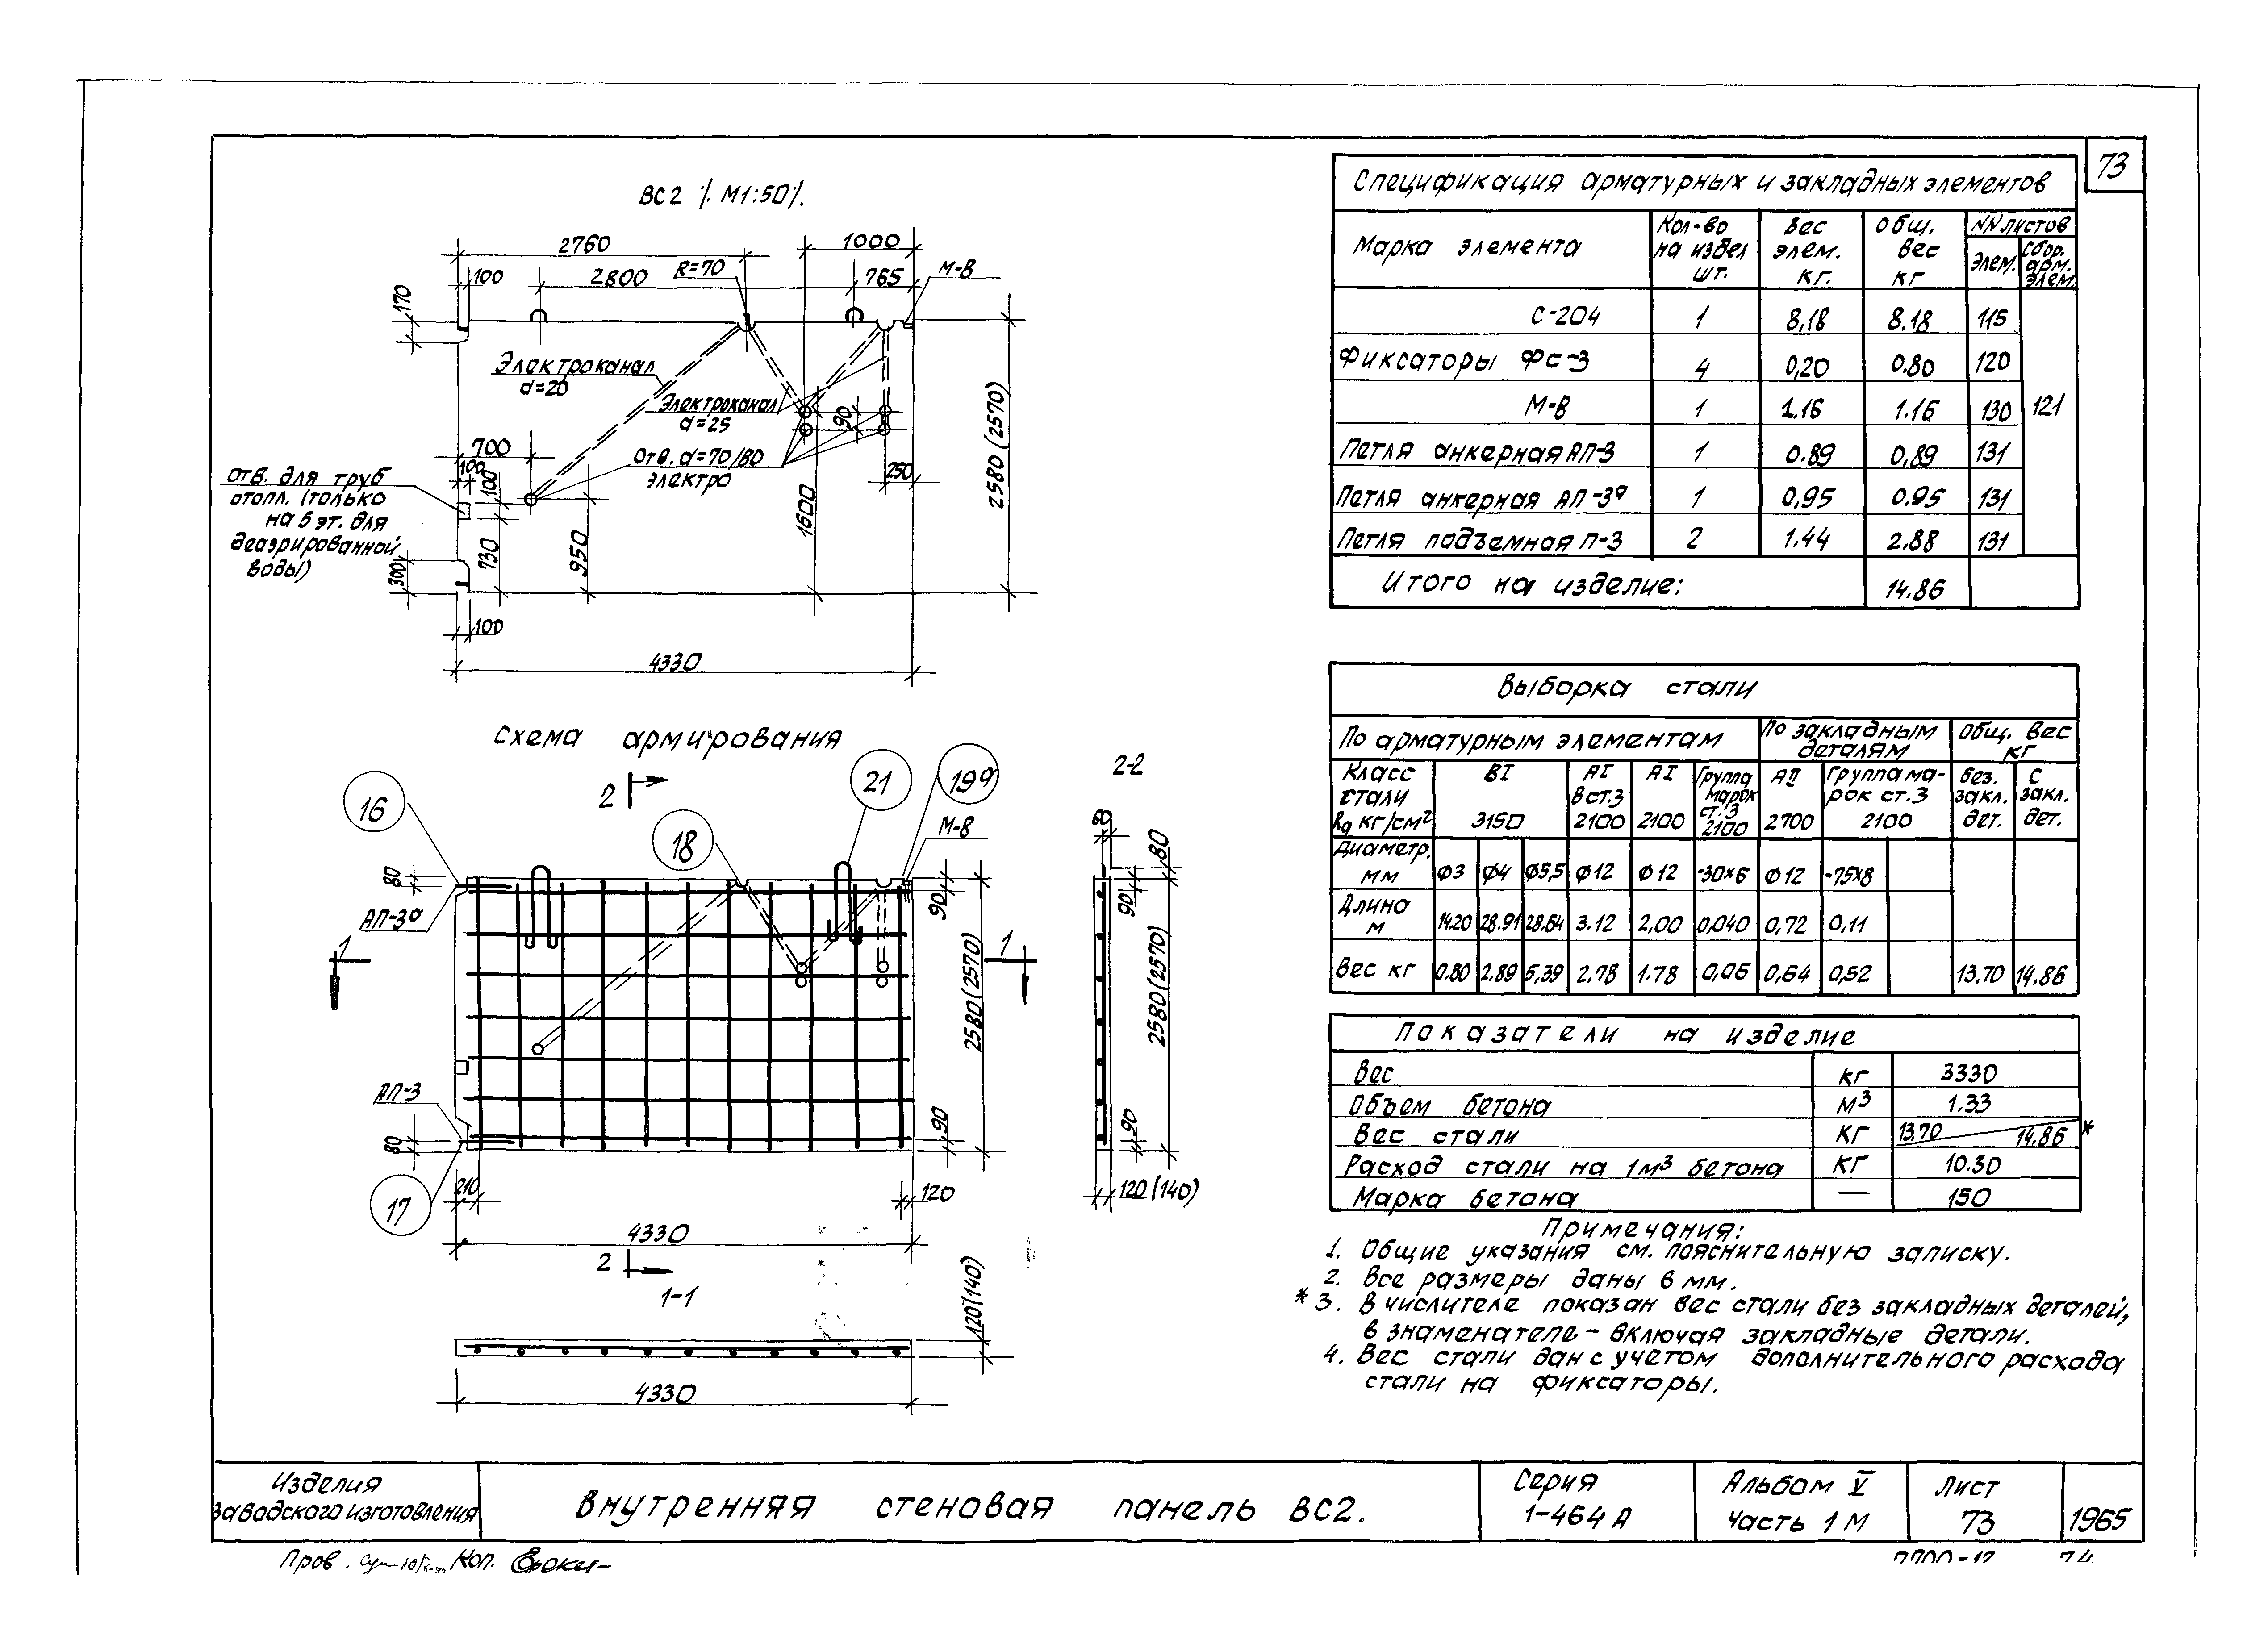 73
ВС2 ⁒ М1:50⁒
2760
1000
100
2800
R=70
765
М-8
170
Электроканал
d=20
Электроканал
d=25
90
2580 (2570)
700
100
100
Отв. d=70/80
электро
250
отв. для труб
отопл. (только
на 5 эт. для
деаэрированной
воды)
730
950
1600
300
100
4330
Схема армирования
2
21
19а
2-2
16
18
М-8
60
80
80
90
90
АП-3а
1
1
2580(2570)
2580(2570)
АП-3
80
90
90
17
210
120
120(140)
4330
2
1-1
120(140)
4330
Спецификация арматурных и закладных элементов
Марка элемента
Кол-во на издел шт.
Вес элем. кг.
Общ. вес кг
NN листов
Элем.
Сбор. арм. элем.
С-204 1 8,18 8.18 115
Фиксаторы ФС-3 4 0,20 0.80 120
М-8 1 1.16 1.16 130 121
Петля анкерная АП-3 1 0.89 0,89 131
Петля анкерная АП-3а 1 0,95 0.95 131
Петля подъемная П-3 2 1.44 2.88 131
Итого на изделие: 14.86
Выборка стали
По арматурным элементам
По закладным деталям
Общ. вес кг
Класс стали Rа кг/см²
ВI 3150
АI вст.3 2100
АI 2100
Группа марок ст.3 2100
АII 2700
Группа марок ст.3 2100
без. закл. дет.
с закл. дет.
Диаметр. мм ф3 ф4 ф5,5 ф12 ф12 -30х6 ф12 -75х8
Длина м 14.20 28.91 28.64 3.12 2,00 0,040 0,72 0,11
Вес кг 0.80 2.89 5,39 2.78 1.78 0,06 0,64 0,52 13.70 14.86
Показатели на изделие
Вес кг 3330
Объем бетона м³ 1.33
Вес стали кг 13.70 14.86 *
Расход стали на 1м³ бетона кг 10.30
Марка бетона — 150
Примечания:
1. Общие указания см. пояснительную записку.
2. Все размеры даны в мм.
* 3. В числителе показан вес стали без закладных деталей,
в знаменателе - включая закладные детали.
4. Вес стали дан с учетом дополнительного расхода
стали на фиксаторы.
Изделия
заводского изготовления
Внутренняя стеновая панель ВС2.
Серия
1-464 А
Альбом V
Часть 1 М
Лист
73
1965
Пров.
Коп.